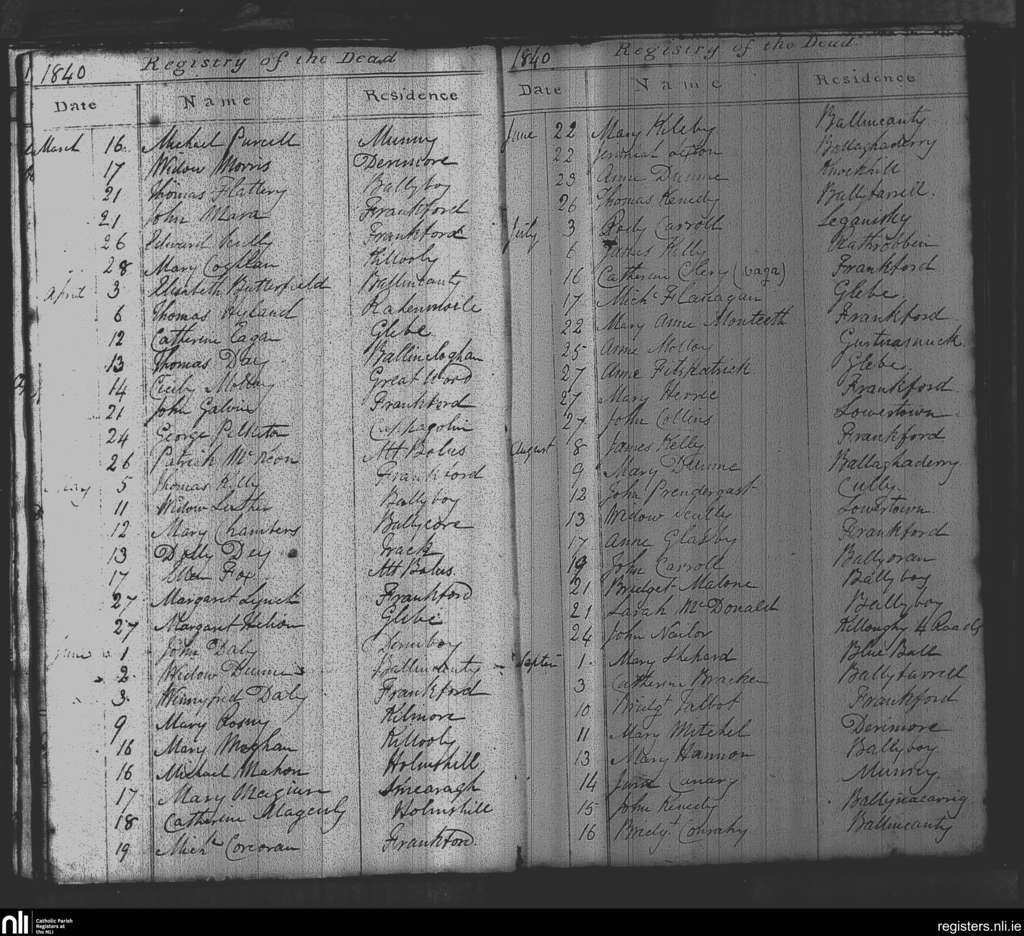 1840 Registry of the Dead
Date Name Residence
March 16 Michael Purcell Munny
17 Widow Morris Derrimore
21 Thomas Flattery Ballyboy
21 John Mara Frankford
26 Edward Scully Frankford
28 Mary Coghlan Killooly
April 3 Elisabeth Butterfield Ballincanty
6 Thomas Hyland
12 Catherine Eagan Glebe
13 Thomas Daly Ballincloghan
14 Cicily Molloy Great Wood
21 John Galvin Frankford
24 George
26 Patrick McKeon Mt Bolus
May 5 Thomas Kelly Frankford
11 Widow Ballyboy
12 Mary Chambers Ballycore
13 Dolly Dey
17 Fox Mt Bolus
27 Margaret Lynch Frankford
27 Margaret Glebe
June 1 John Daly Derriboy
2 Widow Dunne Ballincanty
3 Winnyfred Daly Frankford
9 Mary Kilmore
16 Mary Meghan Killooly
16 Michael Mahon Holmshill
17 Mary Maguire
18 Catherine Holmshill
19 Michl Corcoran Frankford
1840 Registry of the Dead
Date Name Residence
June 22 Mary Ballincanty
22 Ballaghaderry
23 Anne Dunne Knockhill
26 Thomas Kenedy Ballyfarrell
July 3 Carroll
6 James Kelly Rathrobbin
16 Catherine Clery (vaga) Frankford
17 Michl Flanagan Glebe
22 Mary Anne Monteeth Frankford
25 Anne Molloy
27 Anne Fitzpatrick Glebe
27 Mary Frankford
27 John Collins Lowertown
August 8 James Kelly Frankford
9 Mary Dunne Ballaghaderry
12 John Prendergast Cully
13 Widow Scully Lowertown
17 Anne Frankford
19 John Carroll Ballyoran
21 Bridget Malone Ballyboy
21 Sarah McDonald Ballyboy
24 John Nailor Killoughy 4 Roads
Septer 1 Mary Shepard Blue Ball
3 Catherine Bracken Ballyfarrell
10 Bridgt Talbot Frankford
11 Mary Mitchel Derrimore
13 Mary Hannon Ballyboy
14 Canary Munny
15 John Kenedy Ballynacarrig
16 Bridgt Conrahy Ballincanty
nli Catholic Parish
Registers at
the NLI
registers.nli.ie